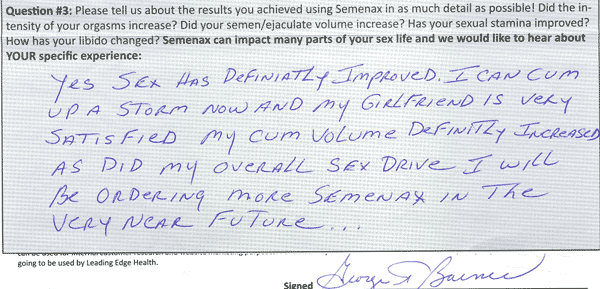 Question #3: Please tell us about the results you achieved using Semenax in as much detail as possible! Did the in-
tensity of your orgasms increase? Did your semen/ejaculate volume increase? Has your sexual stamina improved?
How has your libido changed? Semenax can impact many parts of your sex life and we would like to hear about
YOUR specific experience:
YES SEX HAS DEFINIATLY IMPROVED. I CAN CUM
UP A STORM NOW AND MY GIRLFRIEND IS VERY
SATISFIED MY CUM VOLUME DEFINITLY INCREASED
AS DID MY OVERALL SEX DRIVE I WILL
BE ORDERING MORE SEMENAX IN THE
VERY NEAR FUTURE...
going to be used by Leading Edge Health.
Signed